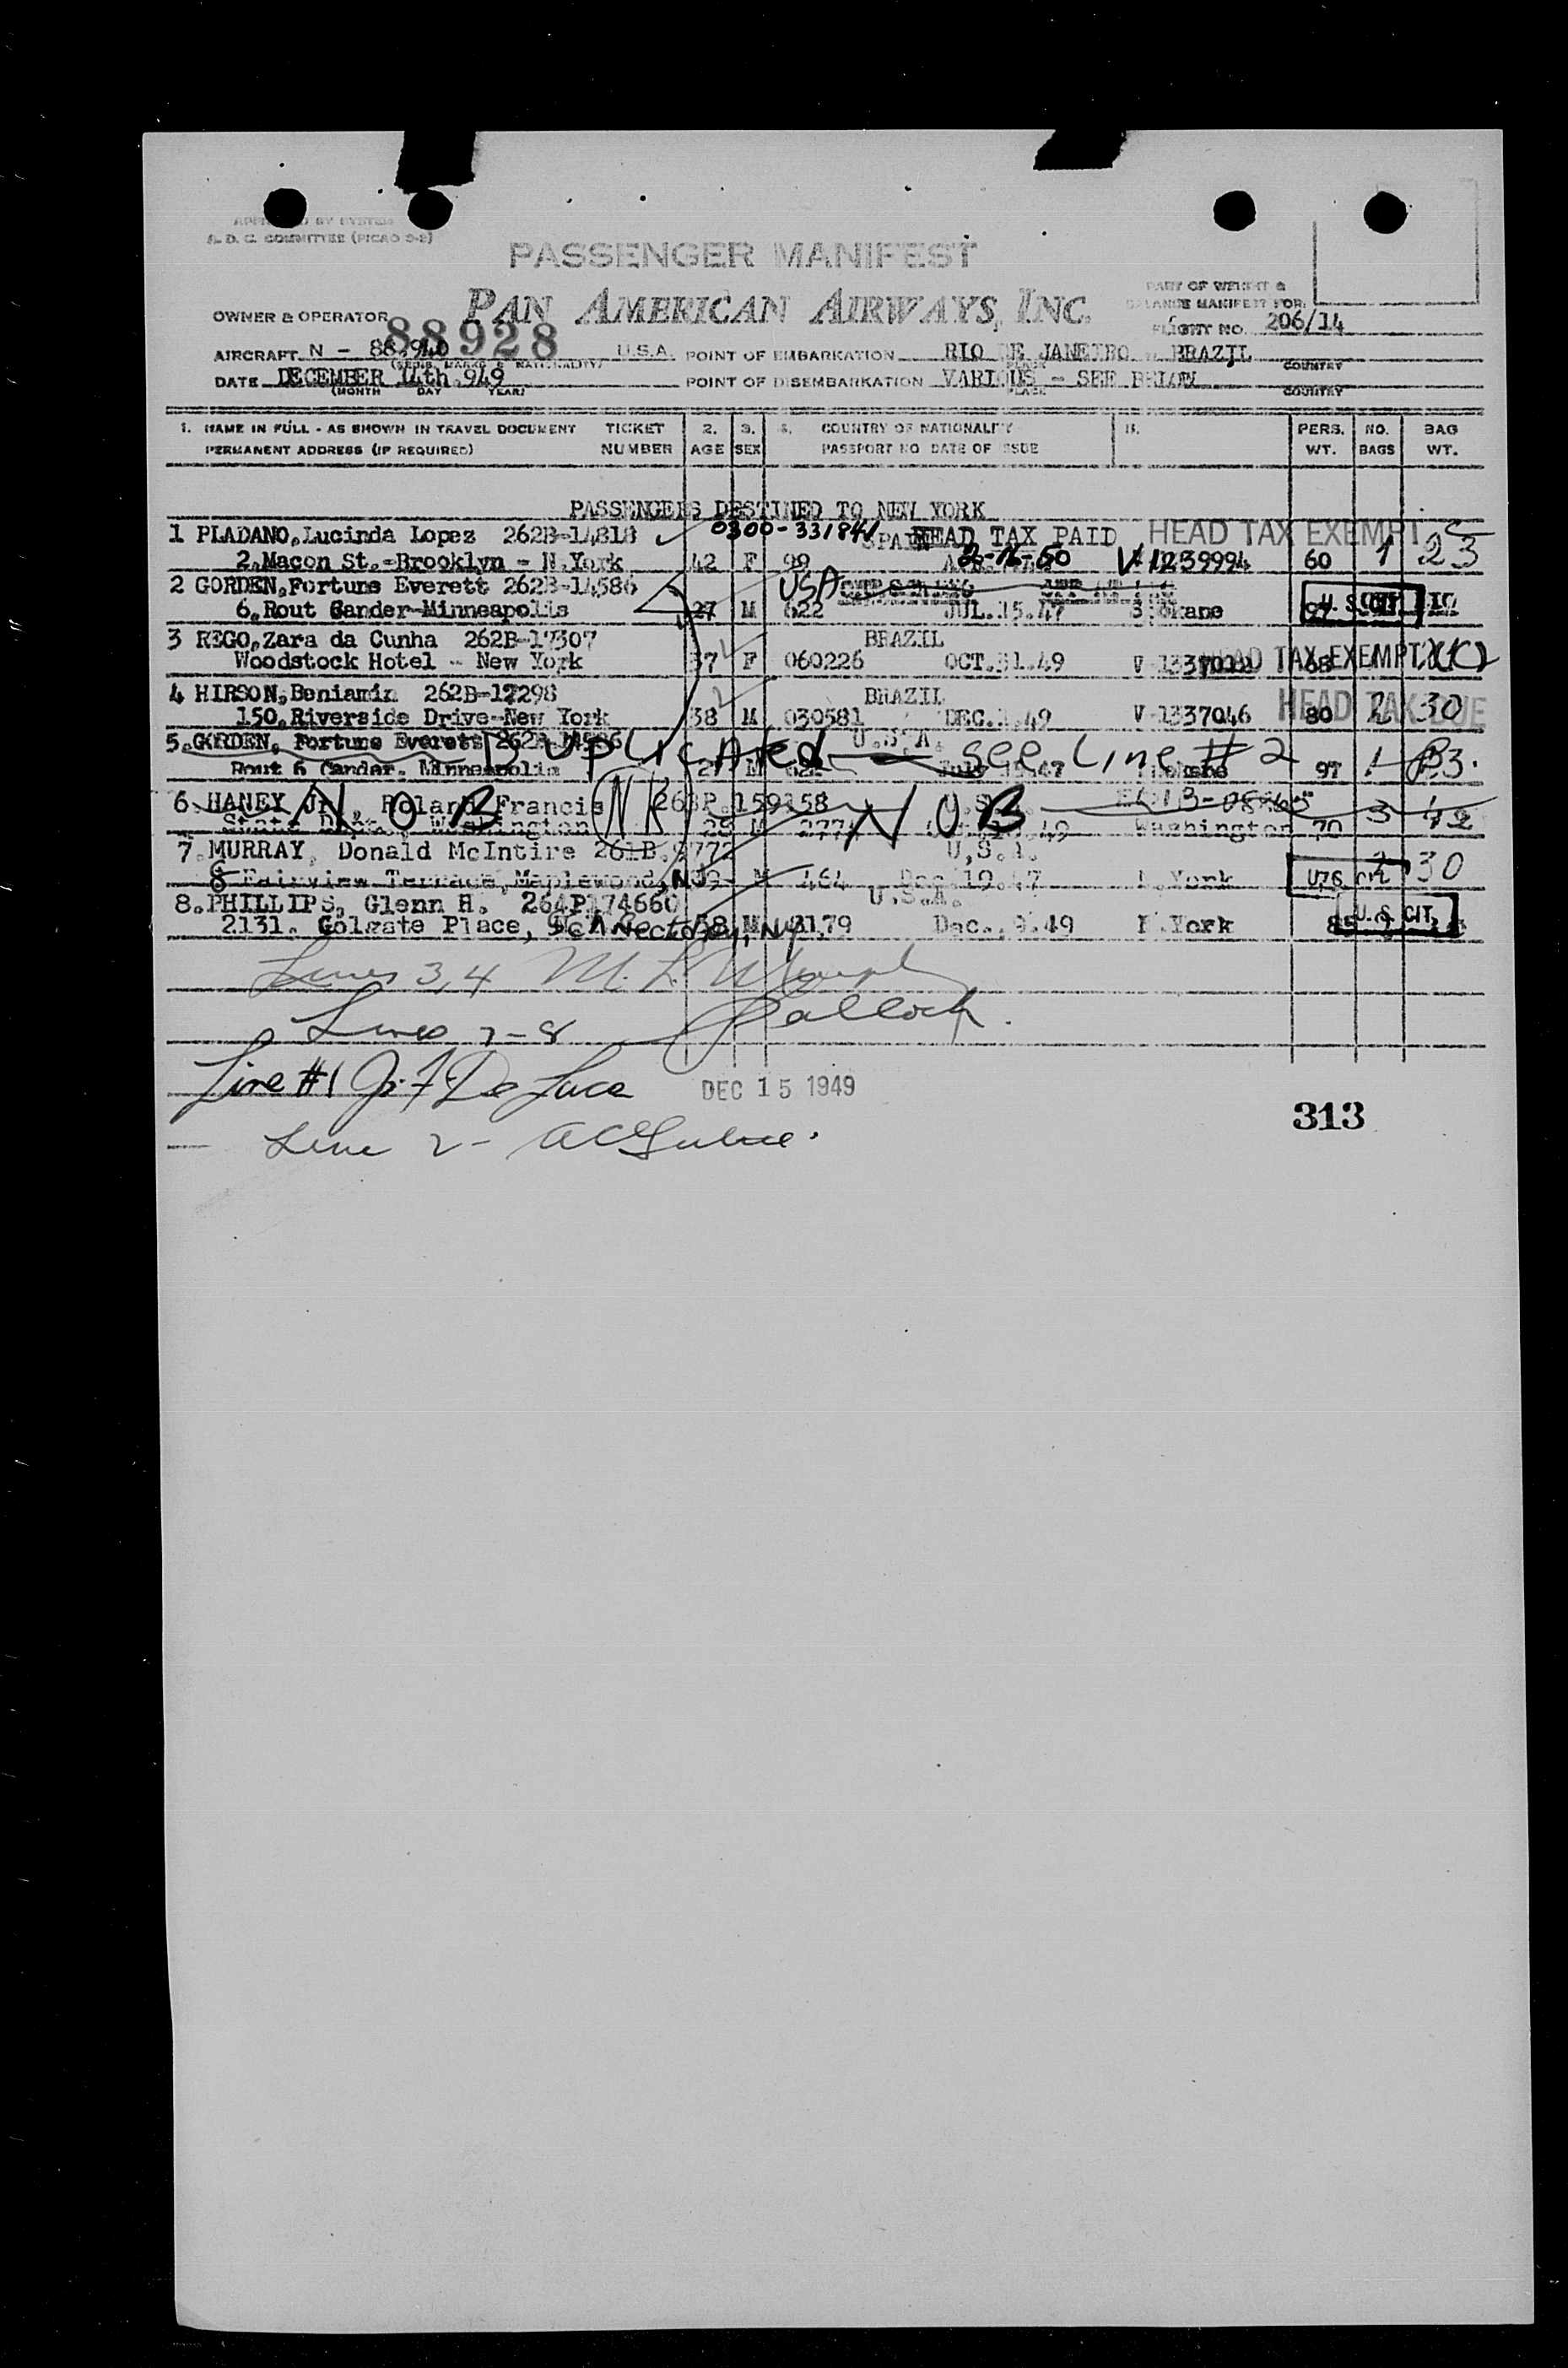 A. D. C. COMMITTEE (PICAO 9-2)
PASSENGER MANIFEST
PART OF WEIGHT &
BALANCE MANIFEST FOR
OWNER & OPERATOR PAN AMERICAN AIRWAYS, INC.
FLIGHT NO. 206/14
88928
AIRCRAFT N - 88940 U.S.A. POINT OF EMBARKATION RIO DE JANEIRO - BRAZIL
PLACE COUNTRY
DATE DECEMBER 14th 949 POINT OF DISEMBARKATION VARIOUS - SEE BELOW
(MONTH DAY YEAR) PLACE COUNTRY
1. NAME IN FULL - AS SHOWN IN TRAVEL DOCUMENT TICKET 2. 3. 4. COUNTRY OF NATIONALITY PERS. NO. BAG
PERMANENT ADDRESS (IF REQUIRED) NUMBER AGE SEX PASSPORT NO DATE OF ISSUE WT. BAGS WT.
PASSENGERS DESTINED TO NEW YORK
1 PLADANO,Lucinda Lopez 262B-14818 0300-331841 SPAIN HEAD TAX PAID HEAD TAX EXEMPT
2,Macon St.-Brooklyn - N.York 42 F 99 V 1239994 60 1 23
2 GORDEN,Fortune Everett 262B-14586 USA
6,Rout Gander-Minneapolis 27 M 622 JUL.15.47 97 U.S. CIT
3 REGO,Zara da Cunha 262B-17307 BRAZIL
Woodstock Hotel - New York 37 F 060226 OCT.31.49 HEAD TAX EXEMPT
4 HIRSON,Beniamin 262B-17298 BRAZIL
150,Riverside Drive-New York 38 M 030581 DEC. .49 V-1337046 HEAD TAX DUE 80 2 30
5.GORDEN, Fortune Everett DUPLICATED U.S.A. see Line # 2
Rout 6 Gander. Minneapolis 27 M 622 July 15.47 97 1
6.HANEY Jr., Roland Francis NR 263P.159158 U.S.A.
N O B N O B
State Dept., Washington 28 M .49 Washington 70 3 42
7.MURRAY, Donald McIntire 261B.9772 U.S.A.
8 Fairview Terrace, Maplewood, NJ 39 M 464 Dec 19.47 N.York U.S. CIT. 30
8.PHILLIPS, Glenn H. 264P174660 U.S.A.
2131. Colgate Place, Schenectady, NY 58 M 3179 Dec., 9.49 N.York 85 U.S. CIT.
Lines 3,4 M. L. Murphy
Lines 7-8
Line #1 J. F. De Luca DEC 15 1949
313
Line 2-